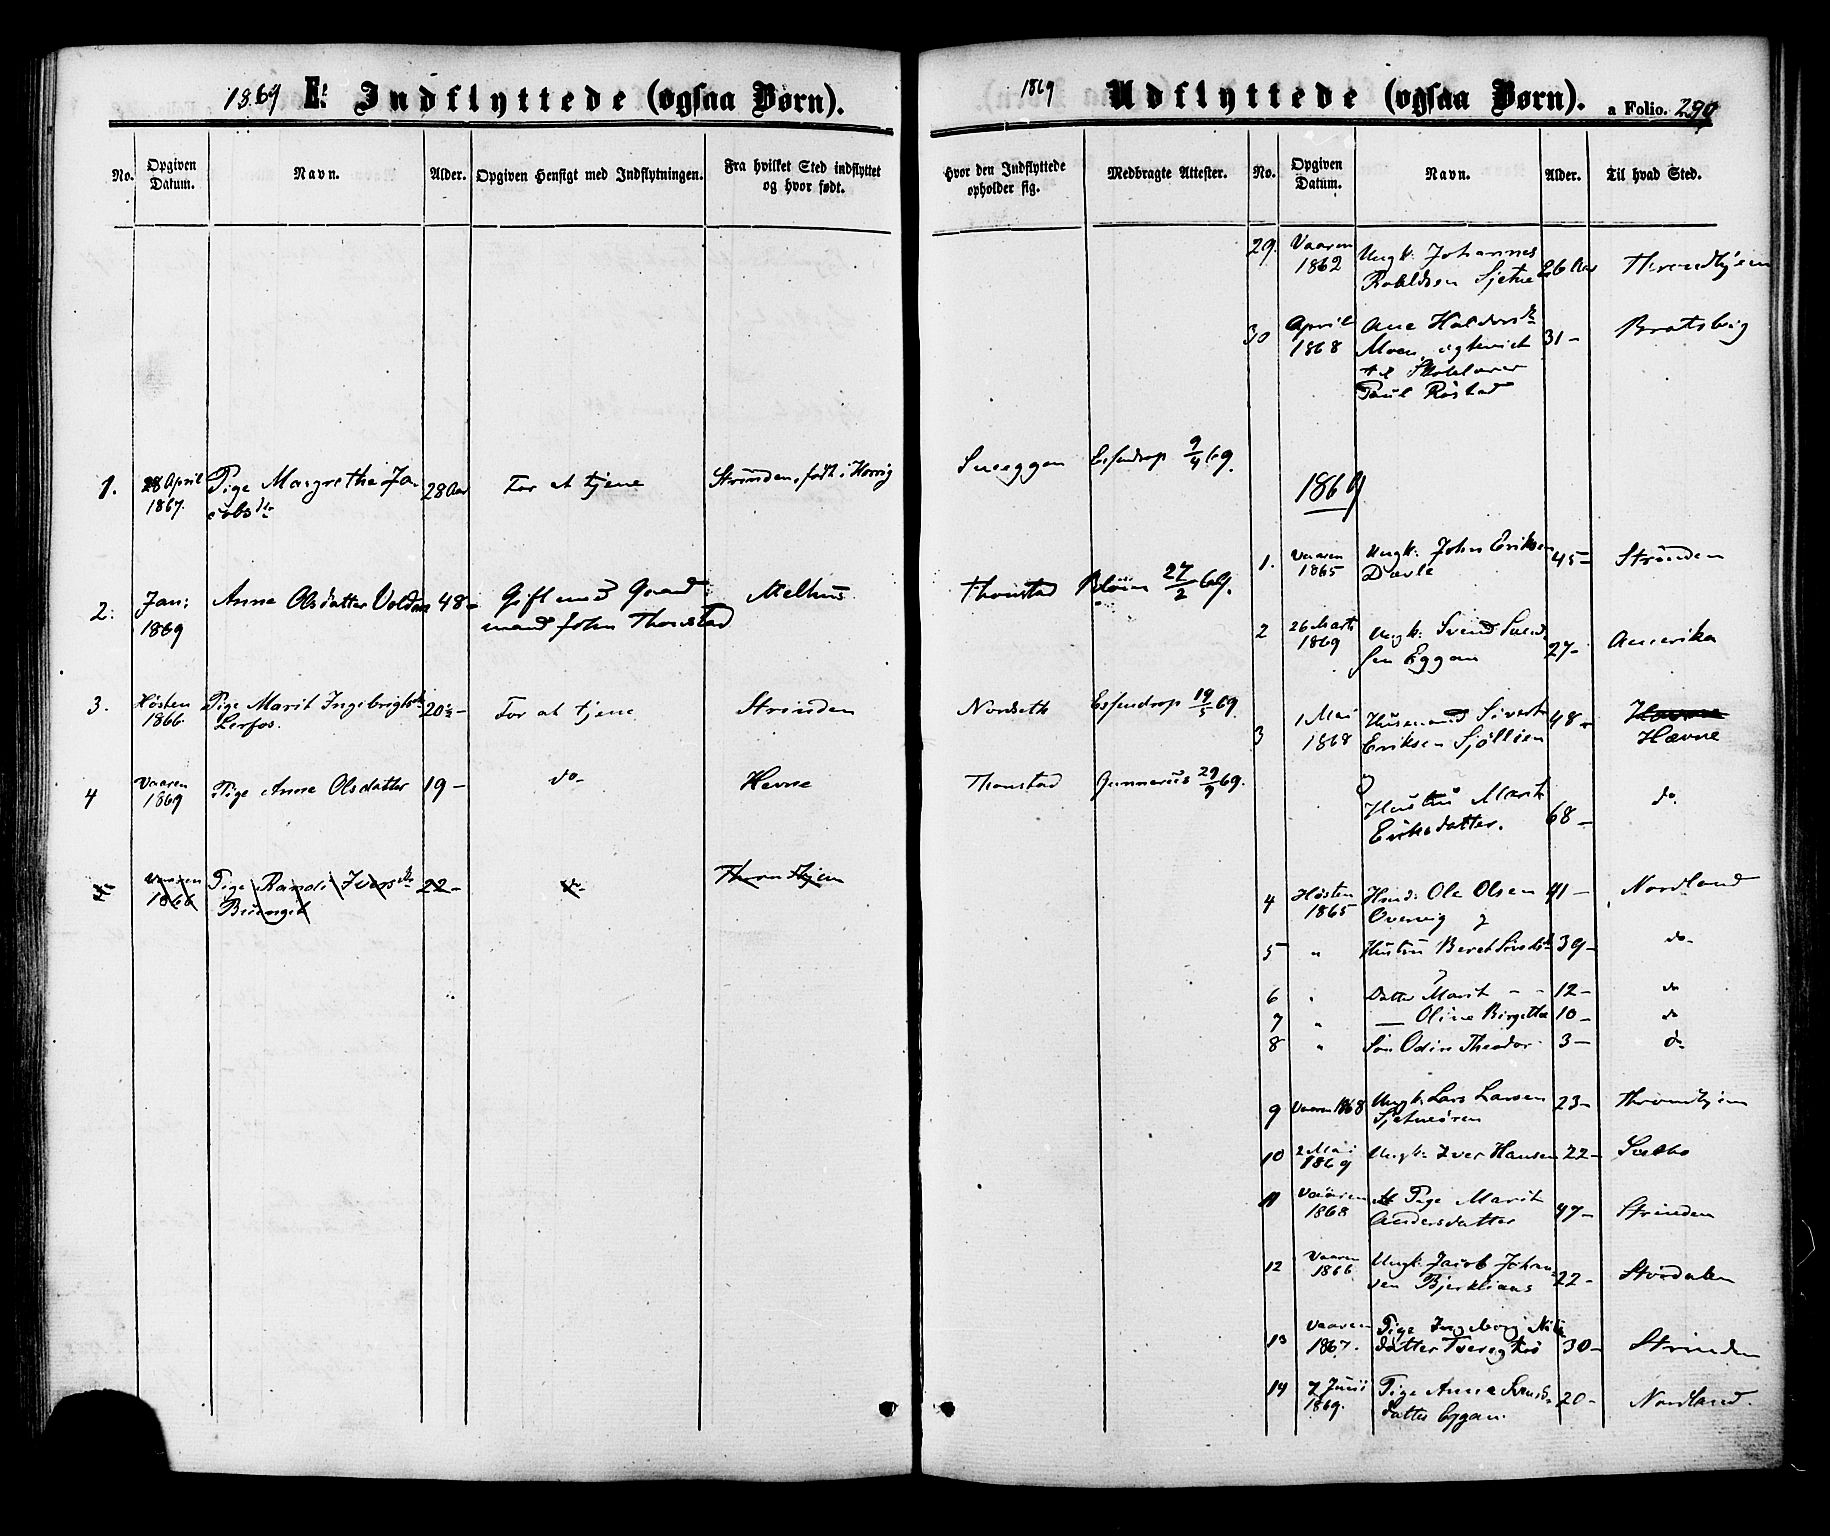 1869 E. Indflyttede (ogsaa Børn).
No.
Opgiven
Datum.
Navn.
Alder.
Opgiven Hensigt med Indflytningen.
Fra hvilket Sted indflyttet
og hvor født.
1. 28 April Pige Margrethe Ja- 28 Aar For at tjene Strinden, født i
1867. cobsdr
2. Jan: Anne Olsdatter Volden 48- Gift med Gaard Melhus
1869 mand John Thonstad
3. Høsten Pige Marit Ingebrigtsdr 20½- For at tjene Strinden
1866 Lerfos.
4 Vaaren Pige Anne Olsdatter 19- do- Hevne
1869
Vaaren Pige Randi Iversdr 22- do- Throndhjem
1866
1869 Udflyttede (ogsaa Børn). a Folio. 290
Hvor den Indflyttede
opholder sig.
Medbragte Attester.
No.
Opgiven
Datum.
Navn.
Alder.
Til hvad Sted.
Sneeggen Essendrop 9/4 69.
Thonstad 27/2 69.
Nordseth Essendrop 19/5 69.
Thonstad Gunnerus 29/9 69.
29. Vaaren Ungk: Johannes 26 Aar Throndhjem
1862 Roaldsen Sjetne
30 April Ane Haldorsdr 31- Bratsberg
1868 Moen, egteviet
til Skolelærer
Paul Røstad
1869
1. Vaaren Ungk: John Eriksen 45- Strinden
1865
2 26 Marts Ungk: Svend Svend- 27- Amerika
1869 sen Eggan
3 1 Mai Husmand Sivert 48- Havne
1868 Eriksen Sjøllien Hævne
Hustru Marit 68- do.
Eriksdatter.
4 Høsten Husmd: Ole Olsen 41- Nordland
1865 Overvig
5 " Hustru Beret 39- do-
6 " Datter Marit - - 12- do
7 " — Oline Birgitte 10- do
8 " Søn Odin Theodor 3- do
9 Vaaren 1868 Ungk: Lars Larsen 23- Throndhjem
Sjetneøren
10 2 Mai Ungk: Iver Hansen 22- Sælbo
1869
11 Vaaren Pige Marit 47- Strinden
1868 Andersdatter
12 Vaaren Ungk: Jacob Johan- 22- Størdalen
1866 sen Bjerkliaas
13 Vaaren Pige Ingeborg Nils 30- Strinden
1867. datter
14 7 Juni Pige Anne Svends- 20- Nordland.
1869. datter Eggan.